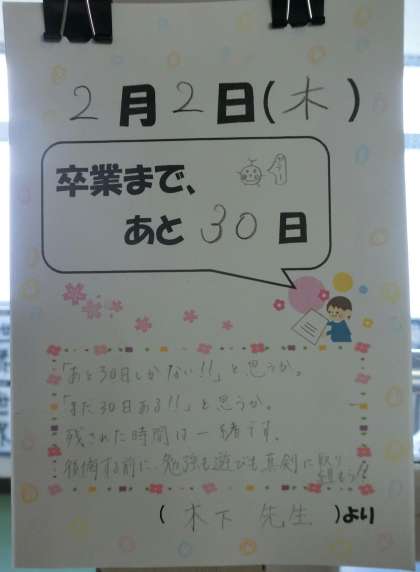 2月2日(木)
卒業まで、
あと30日
「あと30日しかない!!」と思うか。
「まだ30日ある!!」と思うか。
残された時間は一緒です。
後悔する前に、勉強も遊びも真剣に取り
組もう!!
(木下先生)より